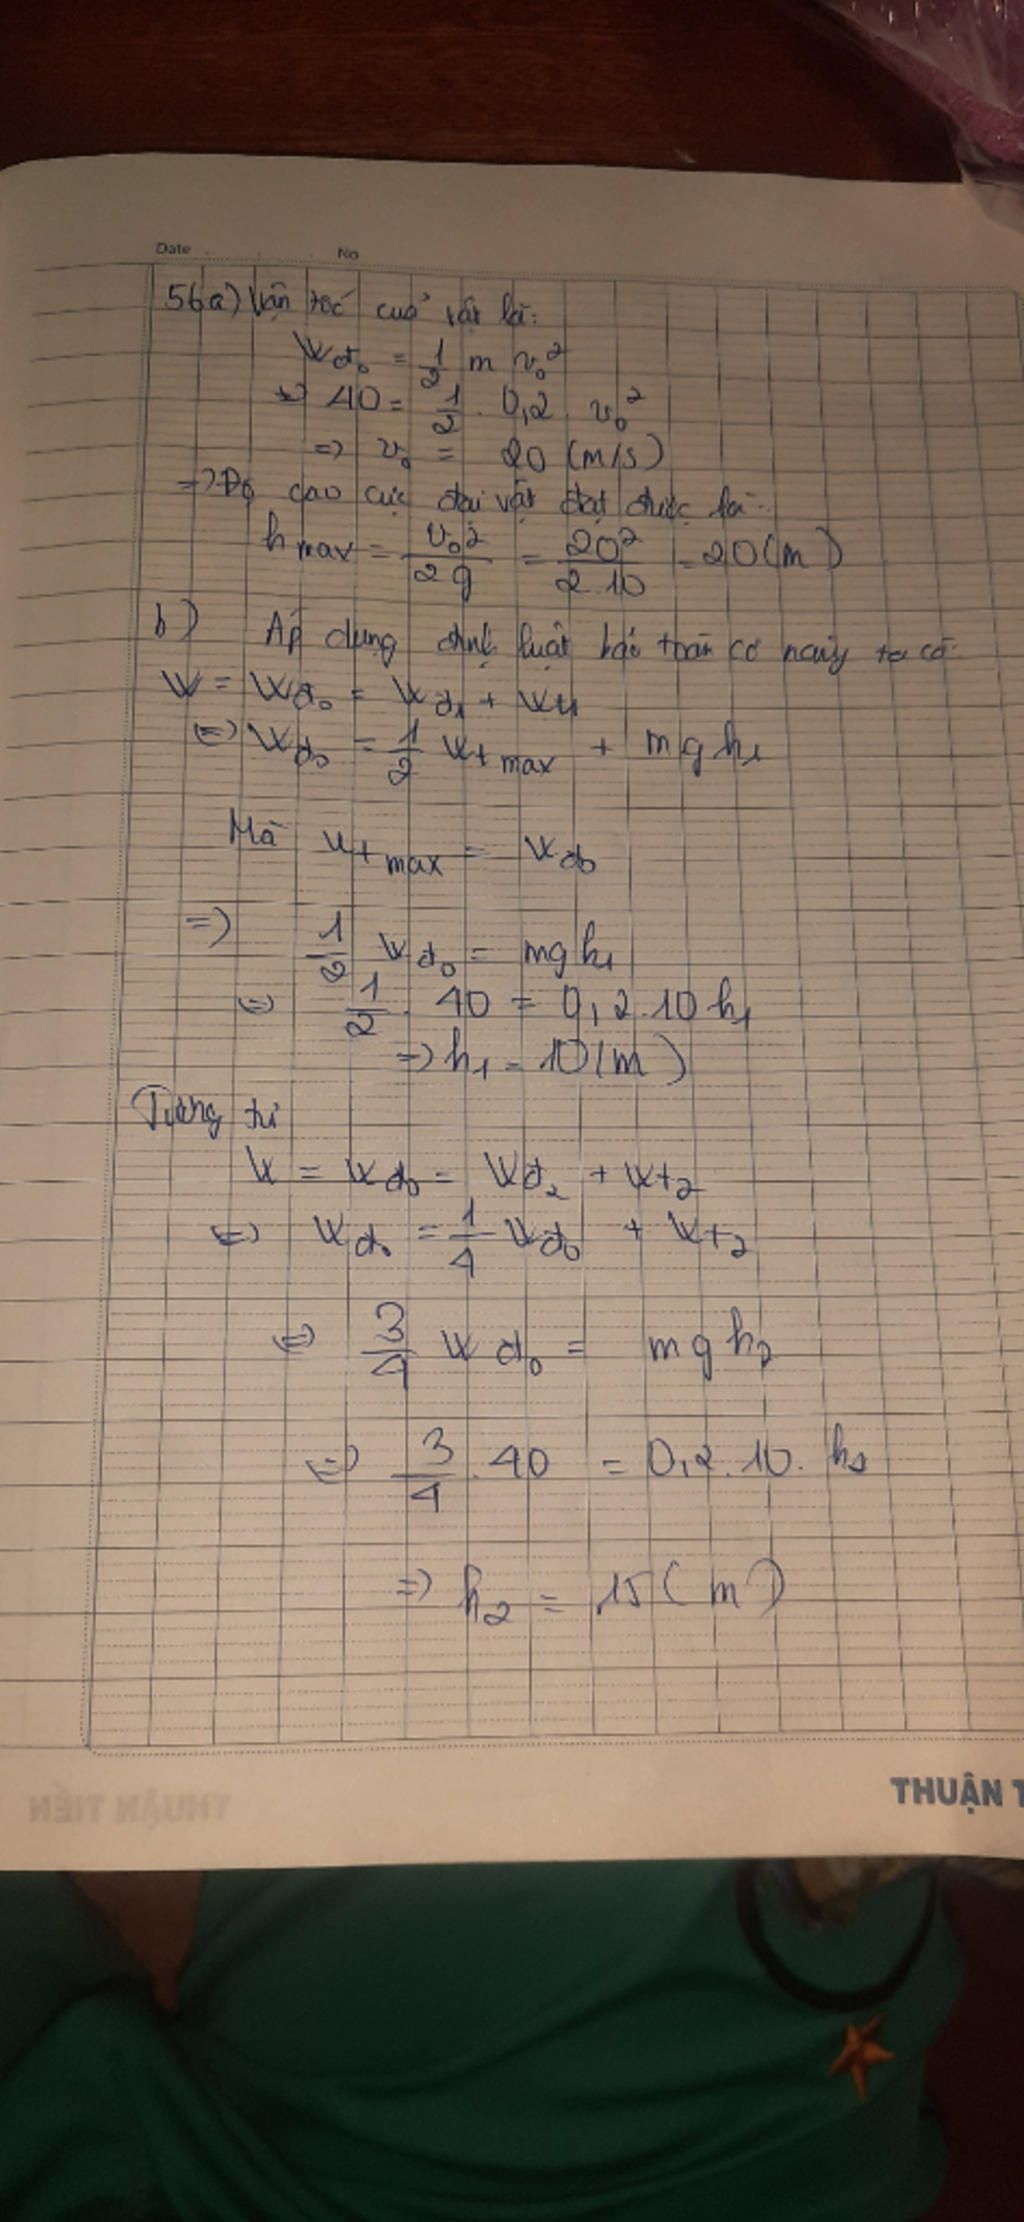 Date No
56a) Vận tốc của vật là:
Wđ₀ = 1/2 m v₀²
=> 40 = 1/2 . 0,2 . v₀²
=> v₀ = 20 (m/s)
=> Độ cao cực đại vật đạt được là:
h max = v₀²/2g = 20²/2.10 = 20 (m)
b) Áp dụng định luật bảo toàn cơ năng ta có
W = Wđ₀ = Wđ₁ + Wt₁
<=> Wđ₀ = 1/2 Wt max + mgh₁
Mà Wt max = Wđ₀
=> 1/2 Wđ₀ = mgh₁
<=> 1/2 . 40 = 0,2.10 h₁
=> h₁ = 10 (m)
Tương tự
W = Wđ₀ = Wđ₂ + Wt₂
<=> Wđ₀ = 1/4 Wđ₀ + Wt₂
<=> 3/4 Wđ₀ = mgh₂
<=> 3/4 . 40 = 0,2.10. h₂
=> h₂ = 15 (m)
THUẬN T
THUẬN TIẾN